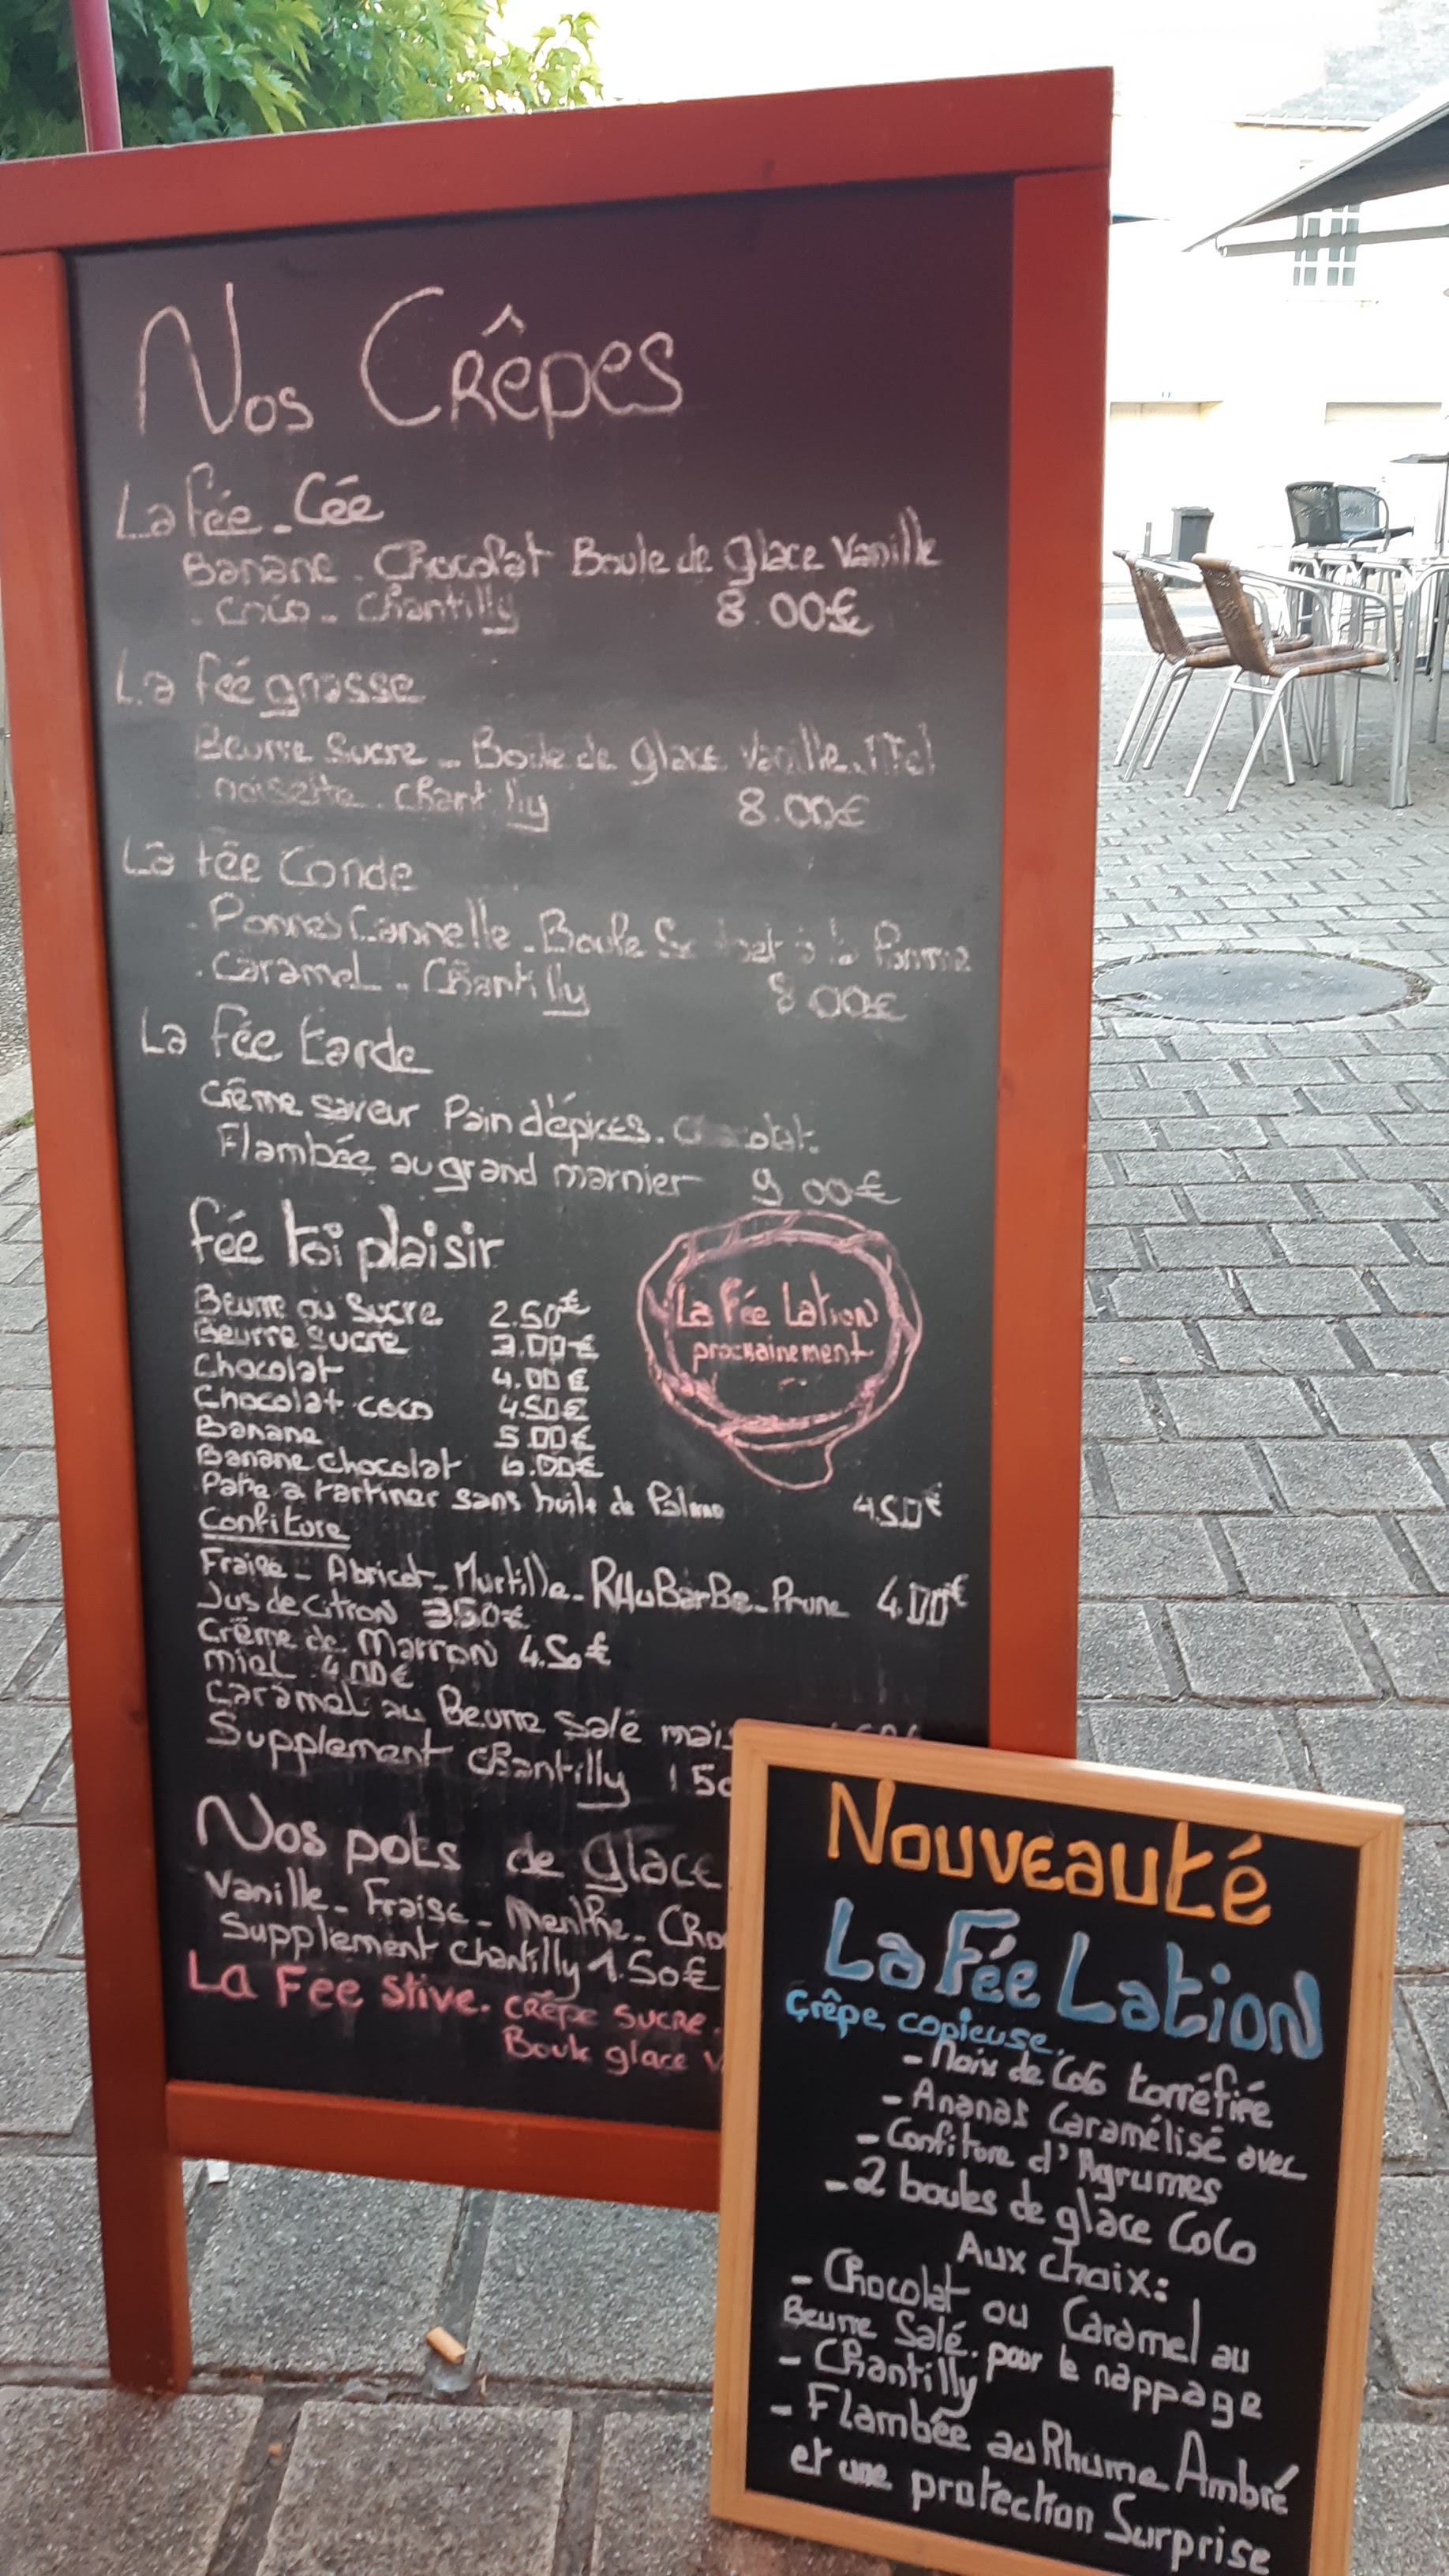 Nos Crêpes
La fée-Cée
Banane. Chocolat Boule de glace Vanille
. coco - chantilly 8.00€
La féé grasse
Beurre Sucre - Boule de glace Vanille. Miel
noisette. chantilly 8.00€
La fée Conde
. Pommes Cannelle - Boule à la Pomme
. Caramel - Chantilly 8.00€
La fée tarde
Crême saveur Pain d'épices. Chocolat.
Flambée au grand marnier 9.00€
fée toi plaisir
Beurre ou Sucre 2.50€
Beurre sucre 3.00€
Chocolat 4.00€
Chocolat coco 4.50€
Banane 5.00€
Banane chocolat 6.00€
La Fée Lation
prochainement
Pate a tartiner sans huile de Palme 4.50€
Confiture
Fraise - Abricot - Myrtille - RHuBarBe - Prune 4.00€
Jus de Citron 3.50€
Crême de Marron 4.50€
miel 4.00€
Caramel au Beurre salé
Supplement chantilly
Nos pots de glace
Vanille - Fraise - Menthe -
Supplement chantilly 1.50€
La Fee Stive. crêpe sucre.
Boule glace
Nouveauté
La Fée Lation
Crêpe copieuse.
- Noix de Coco torréfiée
- Ananas Caramélisé avec
- Confiture d'Agrumes
- 2 boules de glace Coco
Aux choix:
- Chocolat ou Caramel au
Beurre Salé. pour le nappage
- Chantilly
- Flambée au Rhume Ambré
et une protection Surprise